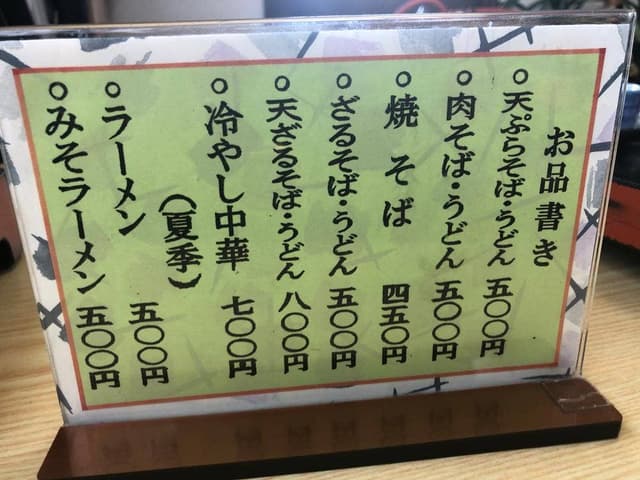 お品書き
○天ぷらそば・うどん 五〇〇円
○肉そば・うどん 五〇〇円
○焼そば 四五〇円
○ざるそば・うどん 五〇〇円
○天ざるそば・うどん 八〇〇円
○冷やし中華 七〇〇円
(夏季)
○ラーメン 五〇〇円
○みそラーメン 五〇〇円